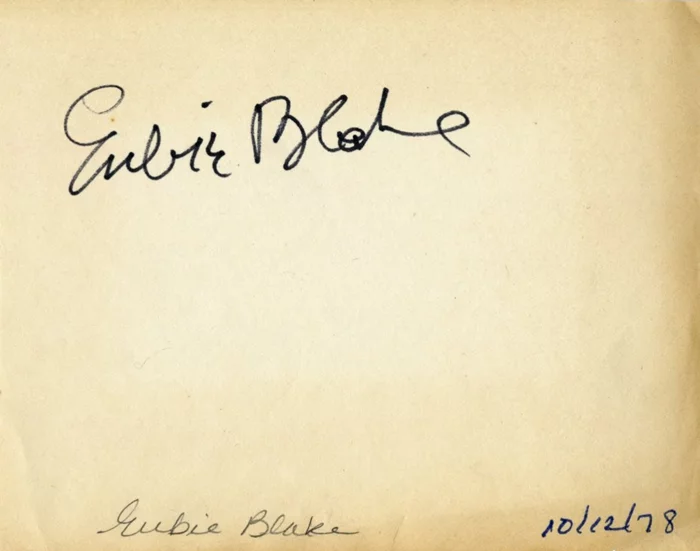 Eubie Blake
Eubie Blake 10/12/78